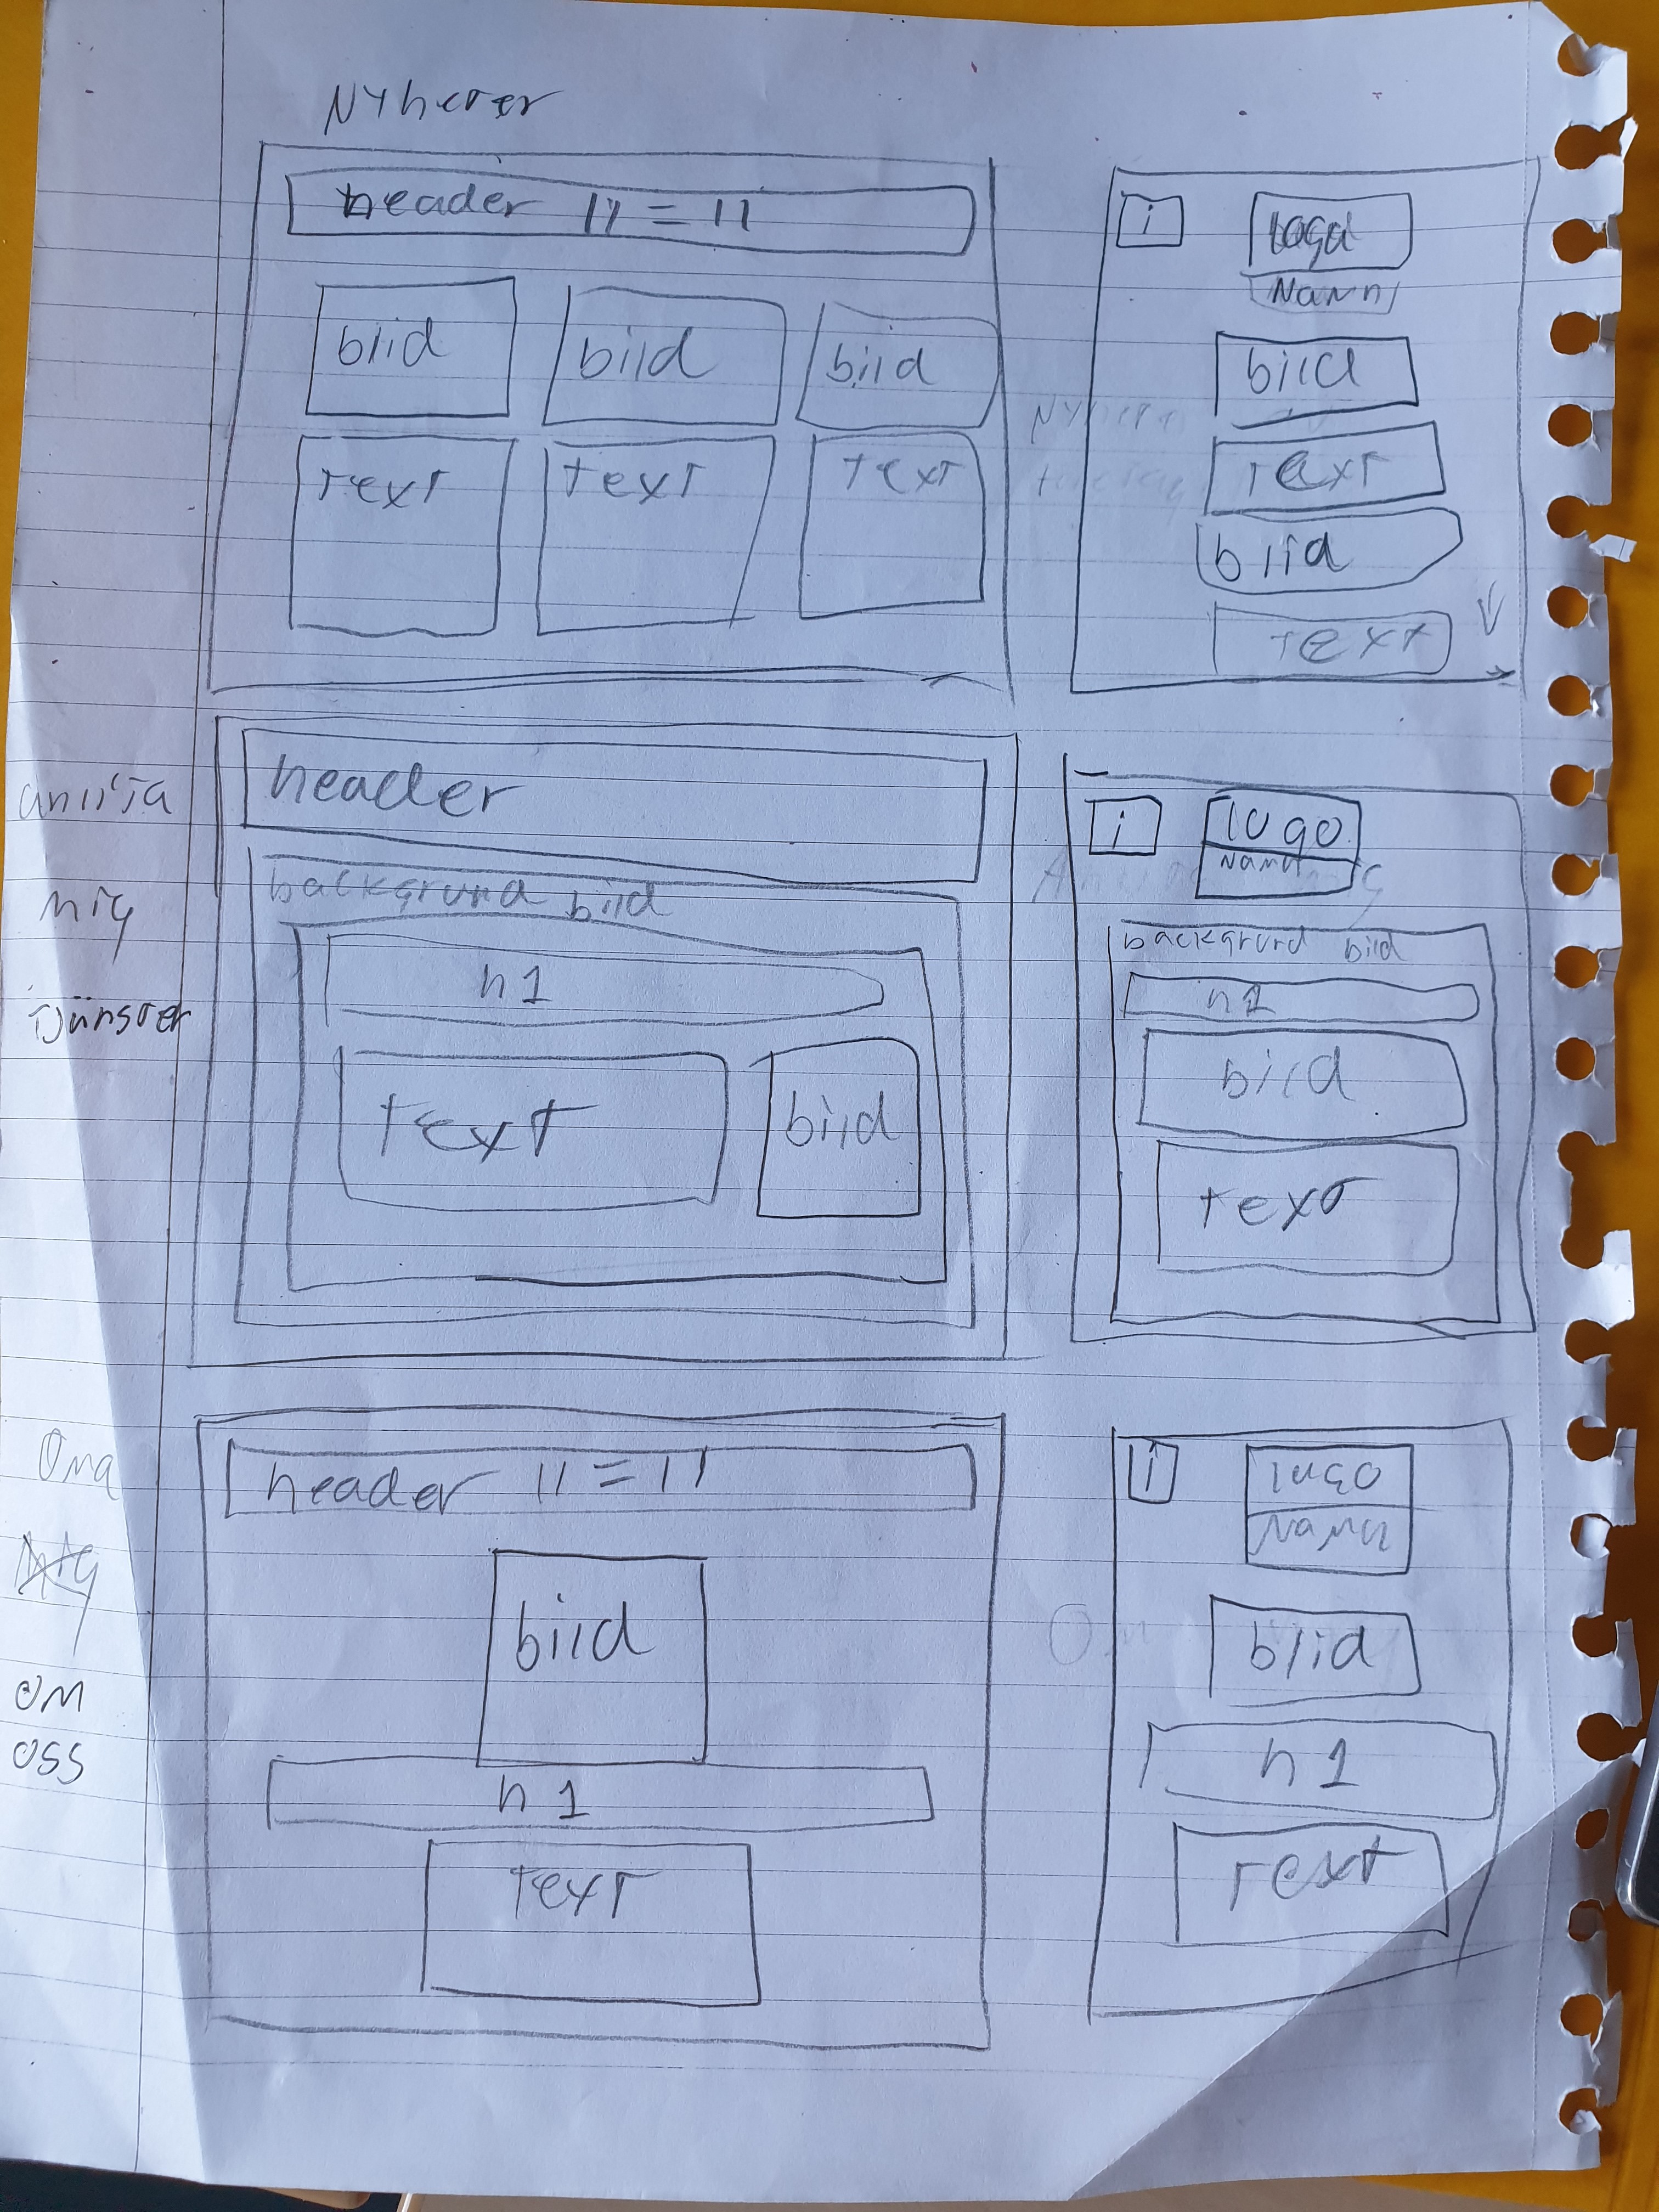 Nyheter
header 11 = 11
bild bild bild
text text text
i
loga
Namn
bild
text
bild
text
anlita
mig
tjänster
header
background bild
h1
text bild
i
logo
Namn
background bild
h1
bild
text
Om
oss
header 11 = 11
bild
h1
text
i
logo
Namn
bild
h1
text